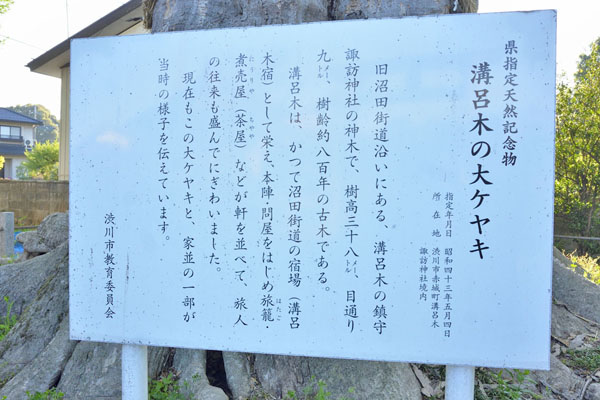 県指定天然記念物
溝呂木の大ケヤキ
指定年月日 昭和四十三年五月四日
所在地 渋川市赤城町溝呂木
諏訪神社境内
旧沼田街道沿いにある、溝呂木の鎮守
諏訪神社の神木で、樹高三十八㍍、目通り
九㍍、樹齢約八百年の古木である。
溝呂木は、かつて沼田街道の宿場(溝呂
木宿)として栄え、本陣・問屋をはじめ旅籠
はたご
煮売屋(茶屋)などが軒を並べて、旅人
にうりや ちゃや
の往来も盛んでにぎわいました。
現在もこの大ケヤキと、家並の一部が
当時の様子を伝えています。
渋川市教育委員会